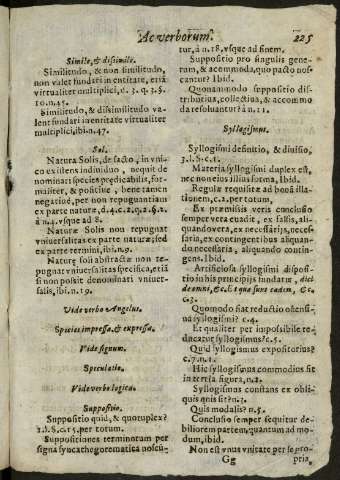 Ac verborum. 225
Simile, & dissimile.
Similitudo, & non similitudo,
non valet fundari in entitate, etiã
virtualiter multiplici, d. 3. q. 3. §.
10. n. 45.
Similitudo, & dissimilitudo va-
lent fundari in entitate virtualiter
multiplici, ibi. n. 47.
Sol.
Natura Solis, de facto, in vni-
co existens individuo, nequit de
nominari species predicabilis, for-
maliter, & positiue, bene tamen
negatiue, per non repugnantiam
ex parte natura, d. 4. c. 2. q. 2. §. 2.
à n. 4. vsque ad 8.
Naturæ Solis non repugnat
vniuersalitas ex parte naturæ, sed
ex parte termini, ibi. n. 9.
Naturę soli abstractæ non re-
pugnat vniuersalitas specifica, etiã
si non possit denominari vniuer-
salis, ibi. n. 19.
Vide verbo Angelus.
Species impressa, & expressa.
Vide signum.
Speculatio.
Vide verbo logica.
Suppositio.
Suppositio quid, & quotuplex?
2. l. S. c. 15. per totum.
Suppositiones terminorum per
signa syncathegorematica noscu-
tur, à n. 18. vsque ad finem.
Suppositio pro singulis gene-
rum, & acommoda, quo pacto nos-
cantur? Ibid.
Quonam modo suppositio dis-
tributiua, collectiua, & accommo
da resoluantur? à n. 21.
Syllogismus.
Syllogismi definitio, & diuisio,
3. l. S. c. 1.
Materia syllogismi duplex est,
nec non eius illius forma, Ibid.
Regulæ requisitæ ad bonã illa-
tionem, c. 2. per totum.
Ex præmissis veris conclusio
semper vera euadit, ex falsis, ali-
quando vera, ex necessarijs, neces-
saria, ex contingentibus aliquan-
do necessaria, aliquando contin-
gens. Ibid.
Artificiosa syllogismi disposi-
tio in his principijs fundatur, dici
de omni, &c. Et quæ sunt eadem, &c.
c. 3.
Quomodo fiat reductio ostensi-
ua syllogismi? c. 4.
Et qualiter per impossibile re-
ducatur syllogismus? c. 5.
Quid syllogismus expositorius?
c. 7. n. 1.
Hic syllogismus commodius sit
in tertia figura, n. 2.
Syllogismus constans ex obli-
quis quis sit? n. 3.
Quis modalis? n. 5.
Conclusio semper sequitur de-
biliorem partem, quantum ad mo-
dum, ibid.
Non est vnus vnitate per se pro-
Gg pria,